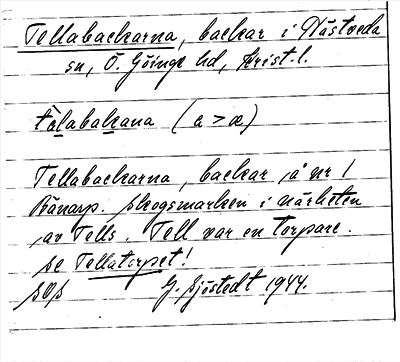 Tellabackarna, backar i Hästveda
sn, Ö. Göinge hd, Krist. l.
tàlabakana (a > æ)
Tellabackarna, backar på nr 1
Bänarp. skogsmarken i närheten
av Tells. Tell var en torpare.
se Tellatorpet!
SOS G. Sjöstedt 1944.